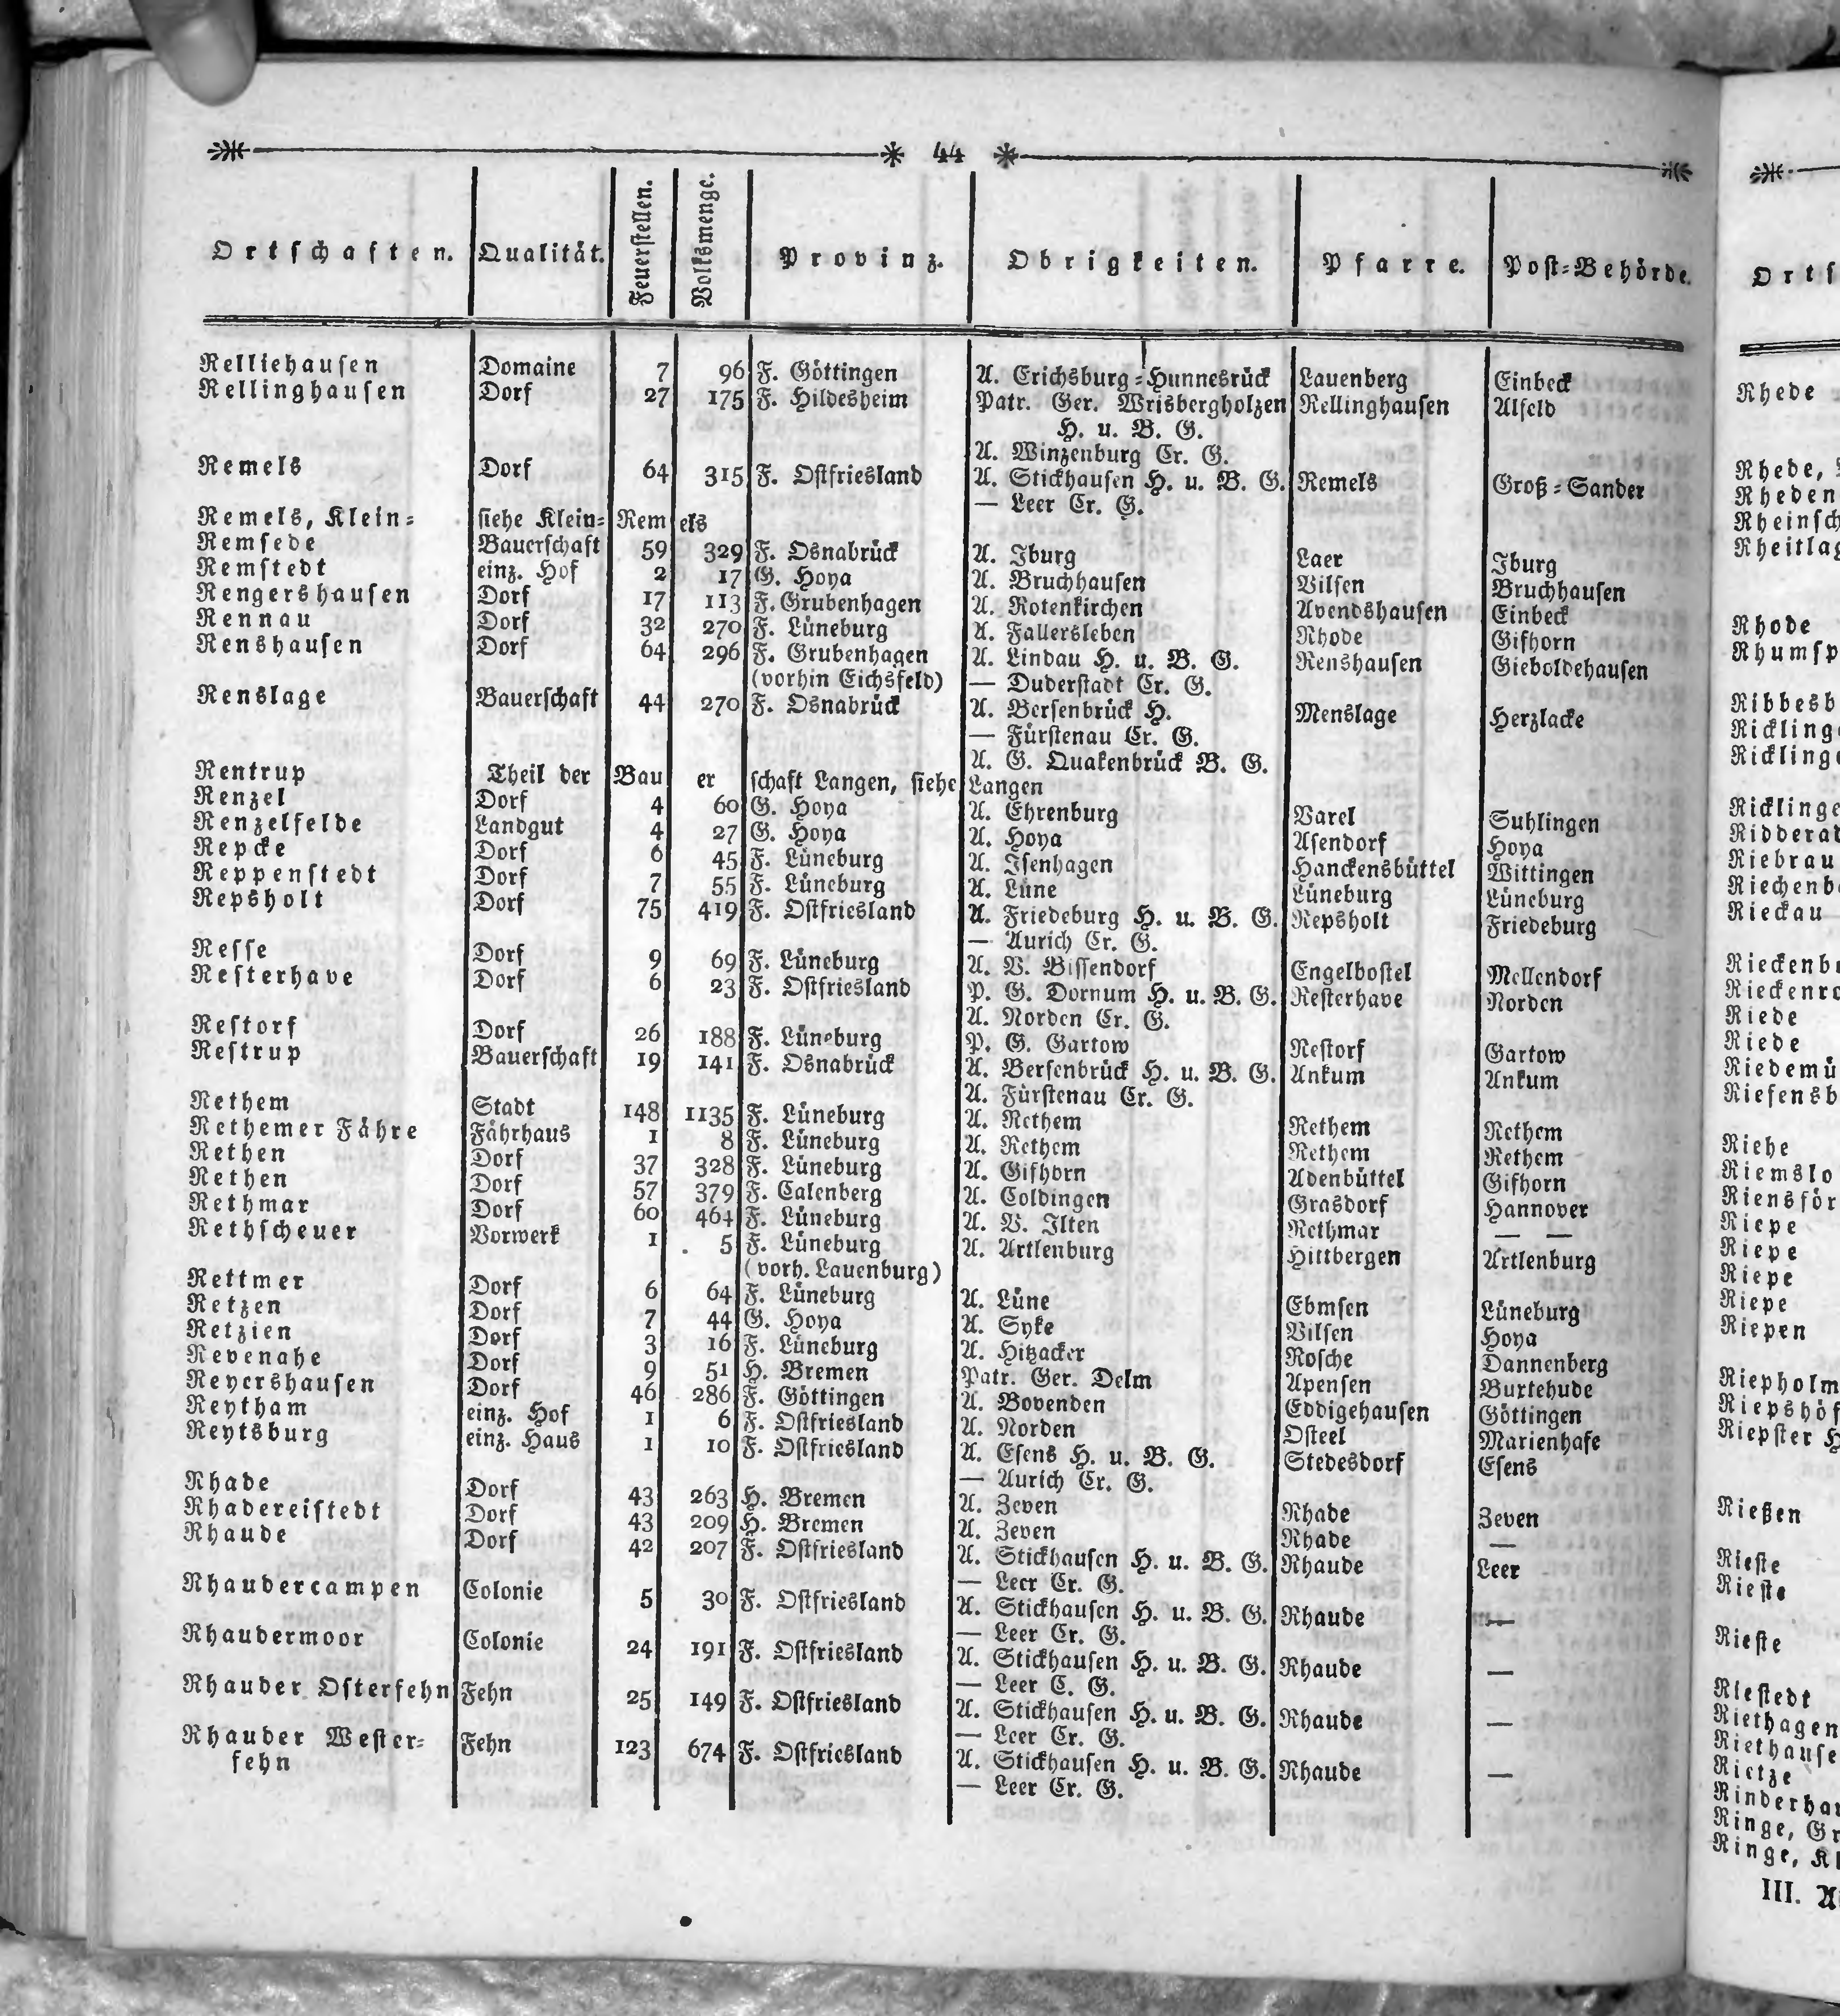 44
Ortschaften. Qualität. Feuerstellen. Volksmenge. Provinz. Obrigkeiten. Pfarre. Post=Behörde.
Relliehausen Domaine 7 96 F. Göttingen A. Erichsburg=Hunnesrück Lauenberg Einbeck
Rellinghausen Dorf 27 175 F. Hildesheim Patr. Ger. Wrisbergholzen Rellinghausen Alfeld
H. u. B. G.
A. Winzenburg Cr. G.
Remels Dorf 64 315 F. Ostfriesland A. Stickhausen H. u. B. G. Remels Groß=Sander
— Leer Cr. G.
Remels, Klein= siehe Klein= Remels
Remsede Bauerschaft 59 329 F. Osnabrück A. Iburg Laer Iburg
Remstedt einz. Hof 2 17 G. Hoya A. Bruchhausen Vilsen Bruchhausen
Rengershausen Dorf 17 113 F. Grubenhagen A. Rotenkirchen Avendshausen Einbeck
Rennau Dorf 32 270 F. Lüneburg A. Fallersleben Rhode Gifhorn
Renshausen Dorf 64 296 F. Grubenhagen A. Lindau H. u. B. G. Renshausen Gieboldehausen
(vorhin Eichsfeld) — Duderstadt Cr. G.
Renslage Bauerschaft 44 270 F. Osnabrück A. Bersenbrück H. Menslage Herzlacke
— Fürstenau Cr. G.
A. G. Quakenbrück B. G.
Rentrup Theil der Bauerschaft Langen, siehe Langen
Renzel Dorf 4 60 G. Hoya A. Ehrenburg Varel Suhlingen
Renzelfelde Landgut 4 27 G. Hoya A. Hoya Asendorf Hoya
Repcke Dorf 6 45 F. Lüneburg A. Isenhagen Hanckensbüttel Wittingen
Reppenstedt Dorf 7 55 F. Lüneburg A. Lüne Lüneburg Lüneburg
Repsholt Dorf 75 419 F. Ostfriesland A. Friedeburg H. u. B. G. Repsholt Friedeburg
— Aurich Cr. G.
Resse Dorf 9 69 F. Lüneburg A. V. Bissendorf Engelbostel Mellendorf
Resterhave Dorf 6 23 F. Ostfriesland P. G. Dornum H. u. B. G. Resterhave Norden
A. Norden Cr. G.
Restorf Dorf 26 188 F. Lüneburg P. G. Gartow Restorf Gartow
Restrup Bauerschaft 19 141 F. Osnabrück A. Bersenbrück H. u. B. G. Ankum Ankum
A. Fürstenau Cr. G.
Rethem Stadt 148 1135 F. Lüneburg A. Rethem Rethem Rethem
Rethemer Fähre Fährhaus 1 8 F. Lüneburg A. Rethem Rethem Rethem
Rethen Dorf 37 328 F. Lüneburg A. Gifhorn Adenbüttel Gifhorn
Rethen Dorf 57 379 F. Calenberg A. Coldingen Grasdorf Hannover
Rethmar Dorf 60 464 F. Lüneburg A. V. Ilten Rethmar — —
Rethscheuer Vorwerk 1 5 F. Lüneburg A. Artlenburg Hittbergen Artlenburg
(vorh. Lauenburg)
Rettmer Dorf 6 64 F. Lüneburg A. Lüne Ebmsen Lüneburg
Retzen Dorf 7 44 G. Hoya A. Syke Vilsen Hoya
Retzien Dorf 3 16 F. Lüneburg A. Hitzacker Rosche Dannenberg
Revenahe Dorf 9 51 H. Bremen Patr. Ger. Delm Apensen Buxtehude
Reyershausen Dorf 46 286 F. Göttingen A. Bovenden Eddigehausen Göttingen
Reytham einz. Hof 1 6 F. Ostfriesland A. Norden Osteel Marienhafe
Reytsburg einz. Haus 1 10 F. Ostfriesland A. Esens H. u. B. G. Stedesdorf Esens
— Aurich Cr. G.
Rhade Dorf 43 263 H. Bremen A. Zeven Rhade Zeven
Rhadereistedt Dorf 43 209 H. Bremen A. Zeven Rhade —
Rhaude Dorf 42 207 F. Ostfriesland A. Stickhausen H. u. B. G. Rhaude Leer
— Leer Cr. G.
Rhaudercampen Colonie 5 30 F. Ostfriesland A. Stickhausen H. u. B. G. Rhaude —
— Leer Cr. G.
Rhaudermoor Colonie 24 191 F. Ostfriesland A. Stickhausen H. u. B. G. Rhaude —
— Leer C. G.
Rhauder Osterfehn Fehn 25 149 F. Ostfriesland A. Stickhausen H. u. B. G. Rhaude —
— Leer Cr. G.
Rhauder Wester= Fehn 123 674 F. Ostfriesland A. Stickhausen H. u. B. G. Rhaude —
fehn — Leer Cr. G.
Rhede
Rhede,
Rheden
Rhode
Riechenb
Rieckau
Riede
Riede
Riehe
Riepe
Riepe
Riepe
Riepe
Riepen
Rießen
Rieste
Rieste
Rieste
Riestedt
Riethagen
Rietze
Ringe, Gr
Ringe, Kl
III.